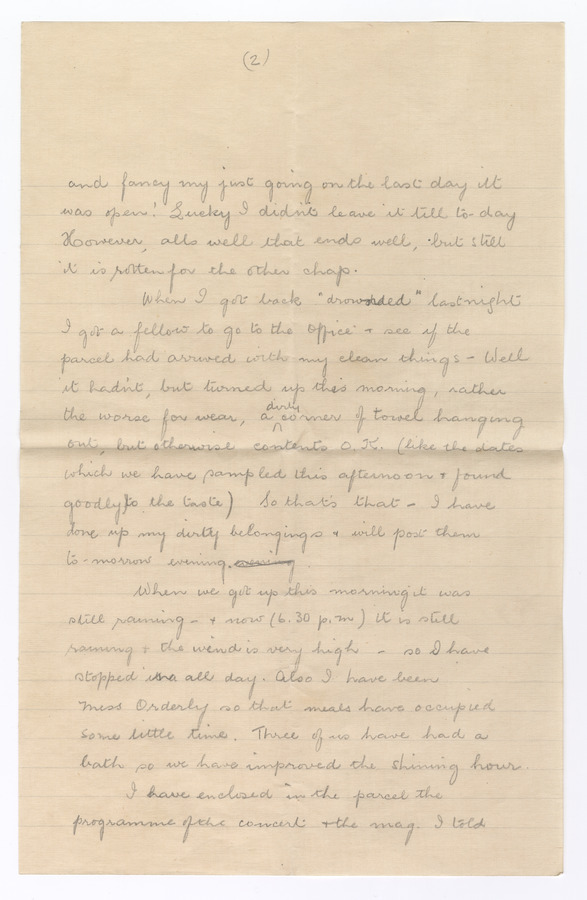 (2)
and fancy my just going on the last day it
was open! Lucky I didn't leave it till to-day
However, alls well that ends well, but still
it is rotten for the other chap.
When I got back "drownded" last night
I got a fellow to go to the Office + see if the
parcel had arrived with my clean things - Well
it hadn't, but turned up this morning, rather
the worse for wear, a dirty corner of towel hanging
out, but otherwise contents O.K. (like the dates
which we have sampled this afternoon + found
goodly to the taste) So that's that - I have
done up my dirty belongings + will post them
to-morrow evening.
When we got up this morning it was
still raining - + now (6.30 p.m) it is still
raining + the wind is very high - so I have
stopped in all day. Also I have been
Mess Orderly so that meals have occupied
some little time. Three of us have had a
bath so we have improved the shining hour.
I have enclosed in the parcel the
programme of the concert + the mag. I told